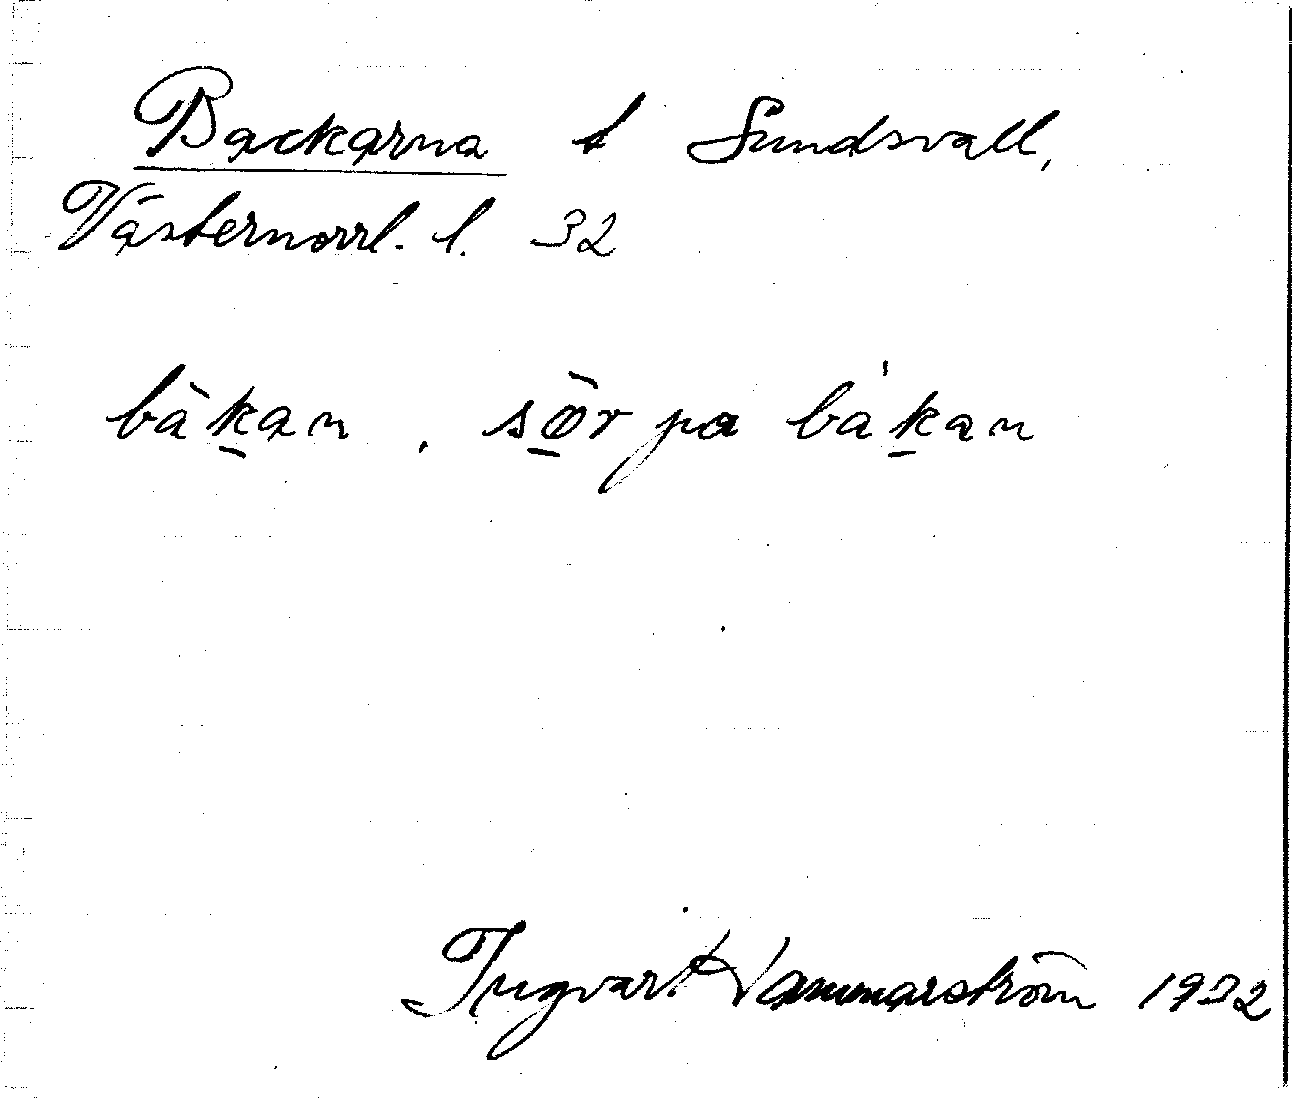 Backarna t Sundsvall,
Västernorrl. l. 32
bàk̠an, sö̠r pa bàk̠an
Ingvar Hammarström 1932